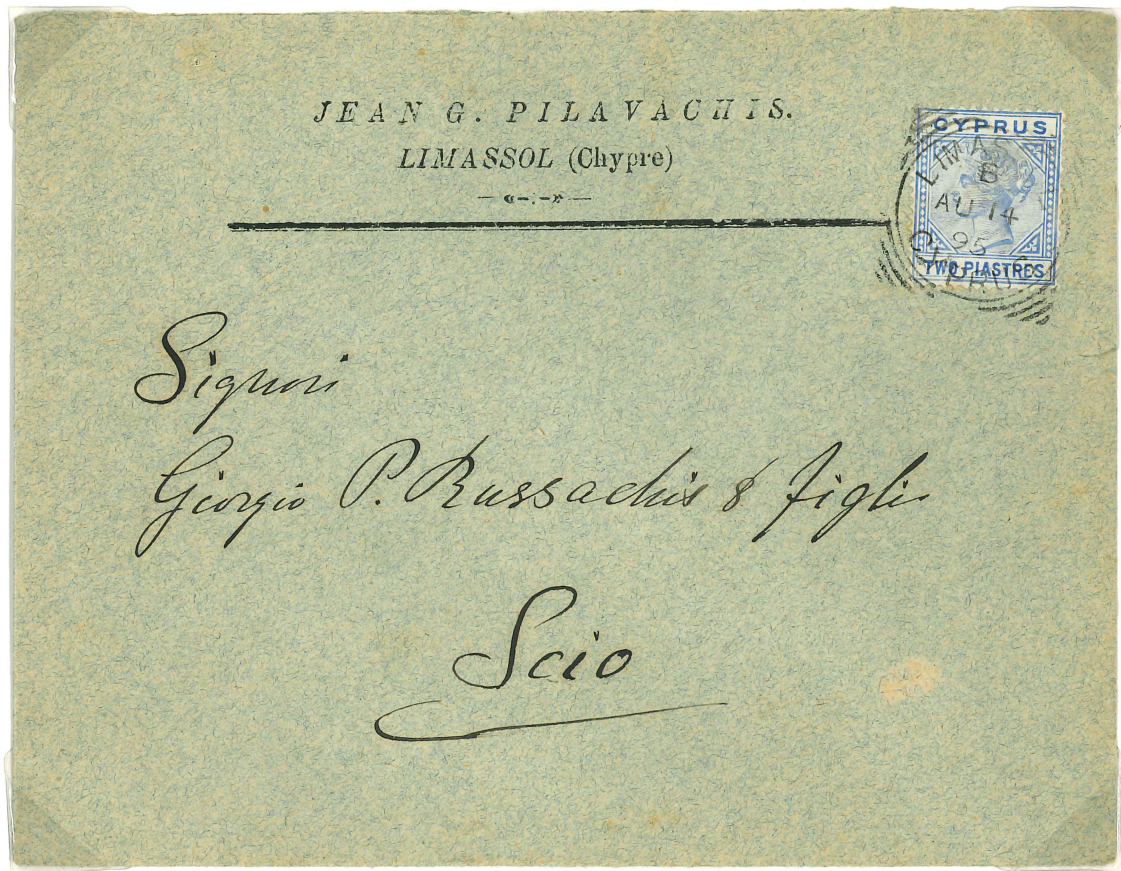 JEAN G. PILAVACHIS.
LIMASSOL (Chypre)
CYPRUS
LIMAS
B
AU 14
95
CYPRUS
TWO PIASTRES
Signori
Giorgio P. Russachis & figli
Scio